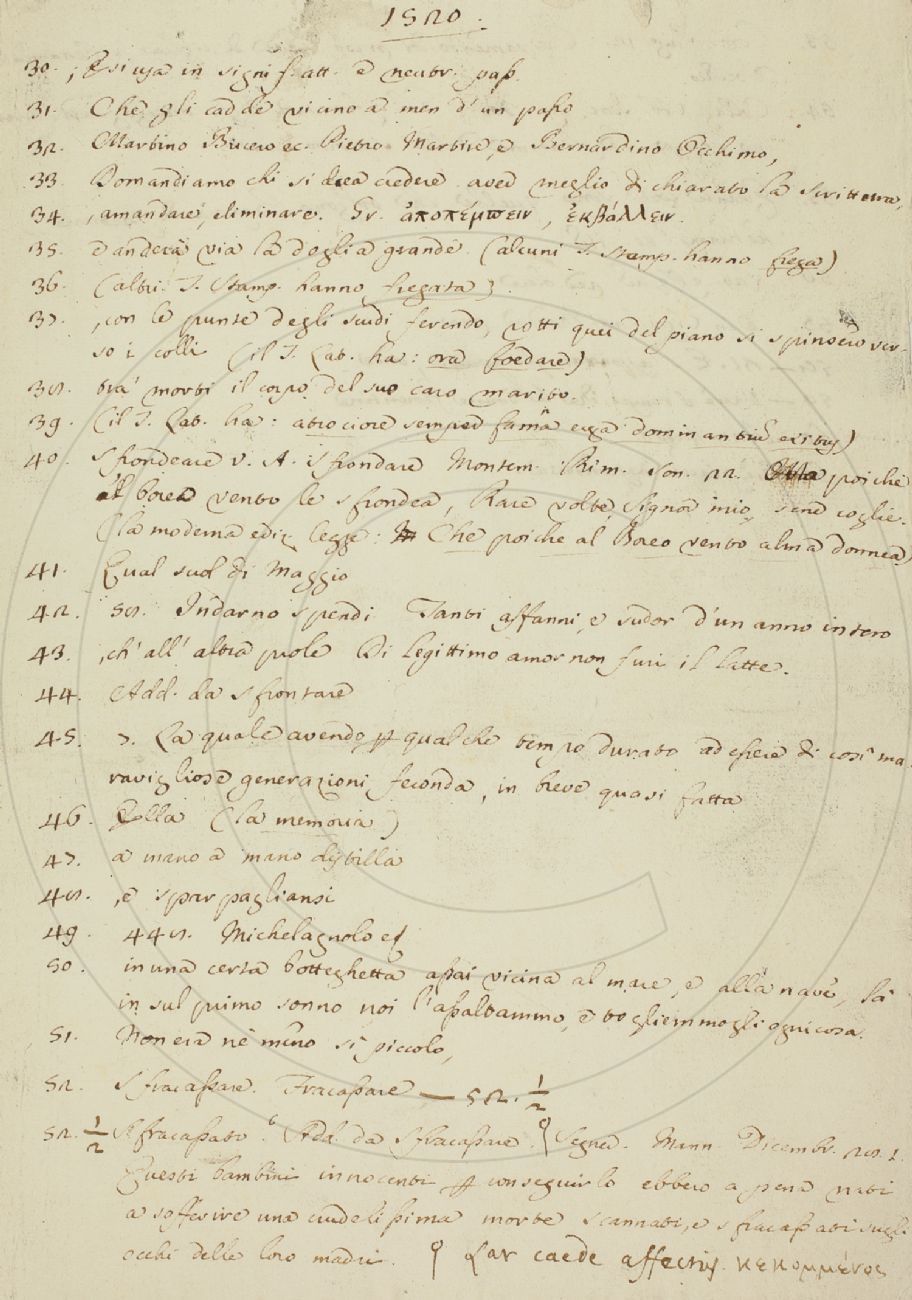 1520.
30. ; E si usa in signif. att. e neutr. pass.
31. Che gli cadde vicino a men d'un passo
32. Martino Bucero ec. Pietro Martire, e Bernardino Occhimo,
33. Domandiamo chi si dea credere aver meglio dichiarato la scrittura,
34. , amandare, eliminare. Gr. ἀποπέμπειν, ἐκβάλλειν.
35. D'anderà via la doglia grande (alcuni T. Stamp. hanno frega)
36. (altri T. Stamp. hanno fregata)
37. , con le punte degli scudi ferendo, rotti quei del piano si spinsero ver-
so i colli (il T. Lat. ha: ora foedare)
38. tra' morti il corpo del suo caro marito.
39. (il T. Lat. ha: atrociore semper fama erga dominantium exitus)
40. Sfrondeare v. A. Sfrondare Montem. Rim. Son. 22. poichè
al borea vento le sfrondea, Rare volte, Signor mio, sene coglie.
(la moderna ediz. legge: Che poiche al Boreo vento alma donnea)
41. Qual suol di Maggio
42. 58. Indarno spendi Tanti affanni, e sudor d'un anno intero
43. , ch'all'altra prole Di legittimo amor non furi il latte.
44. Add. da sfrontare
45. 7. La quale avendo p qualche tempo durato ad essere di così ma-
ravigliose generazioni feconda, in breve quasi fatta
46. Ella (la memoria)
47. a mano a mano distilla
48. , e sparpagliansi
49. 448. Michelagnolo es
50. in una certa botteghetta assai vicina al mare, e alla nave, là
in sul primo sonno noi l'assaltammo, e togliemmogli ogni cosa.
51. Non era nè meno sì piccolo,
52. Sfracassare. Fracassare — 52. 1/2
52. 1/2 Sfracassato. Add. da Sfracassare. Segner. Mann. Dicembr. 28. 1.
Questi bambini innocenti p conseguirlo ebbero a pena nati
a sofferire una crudelissima morte scannati, e sfracassati sugli
occhi delle loro madri. Lat caede affectus. κεκομμένος